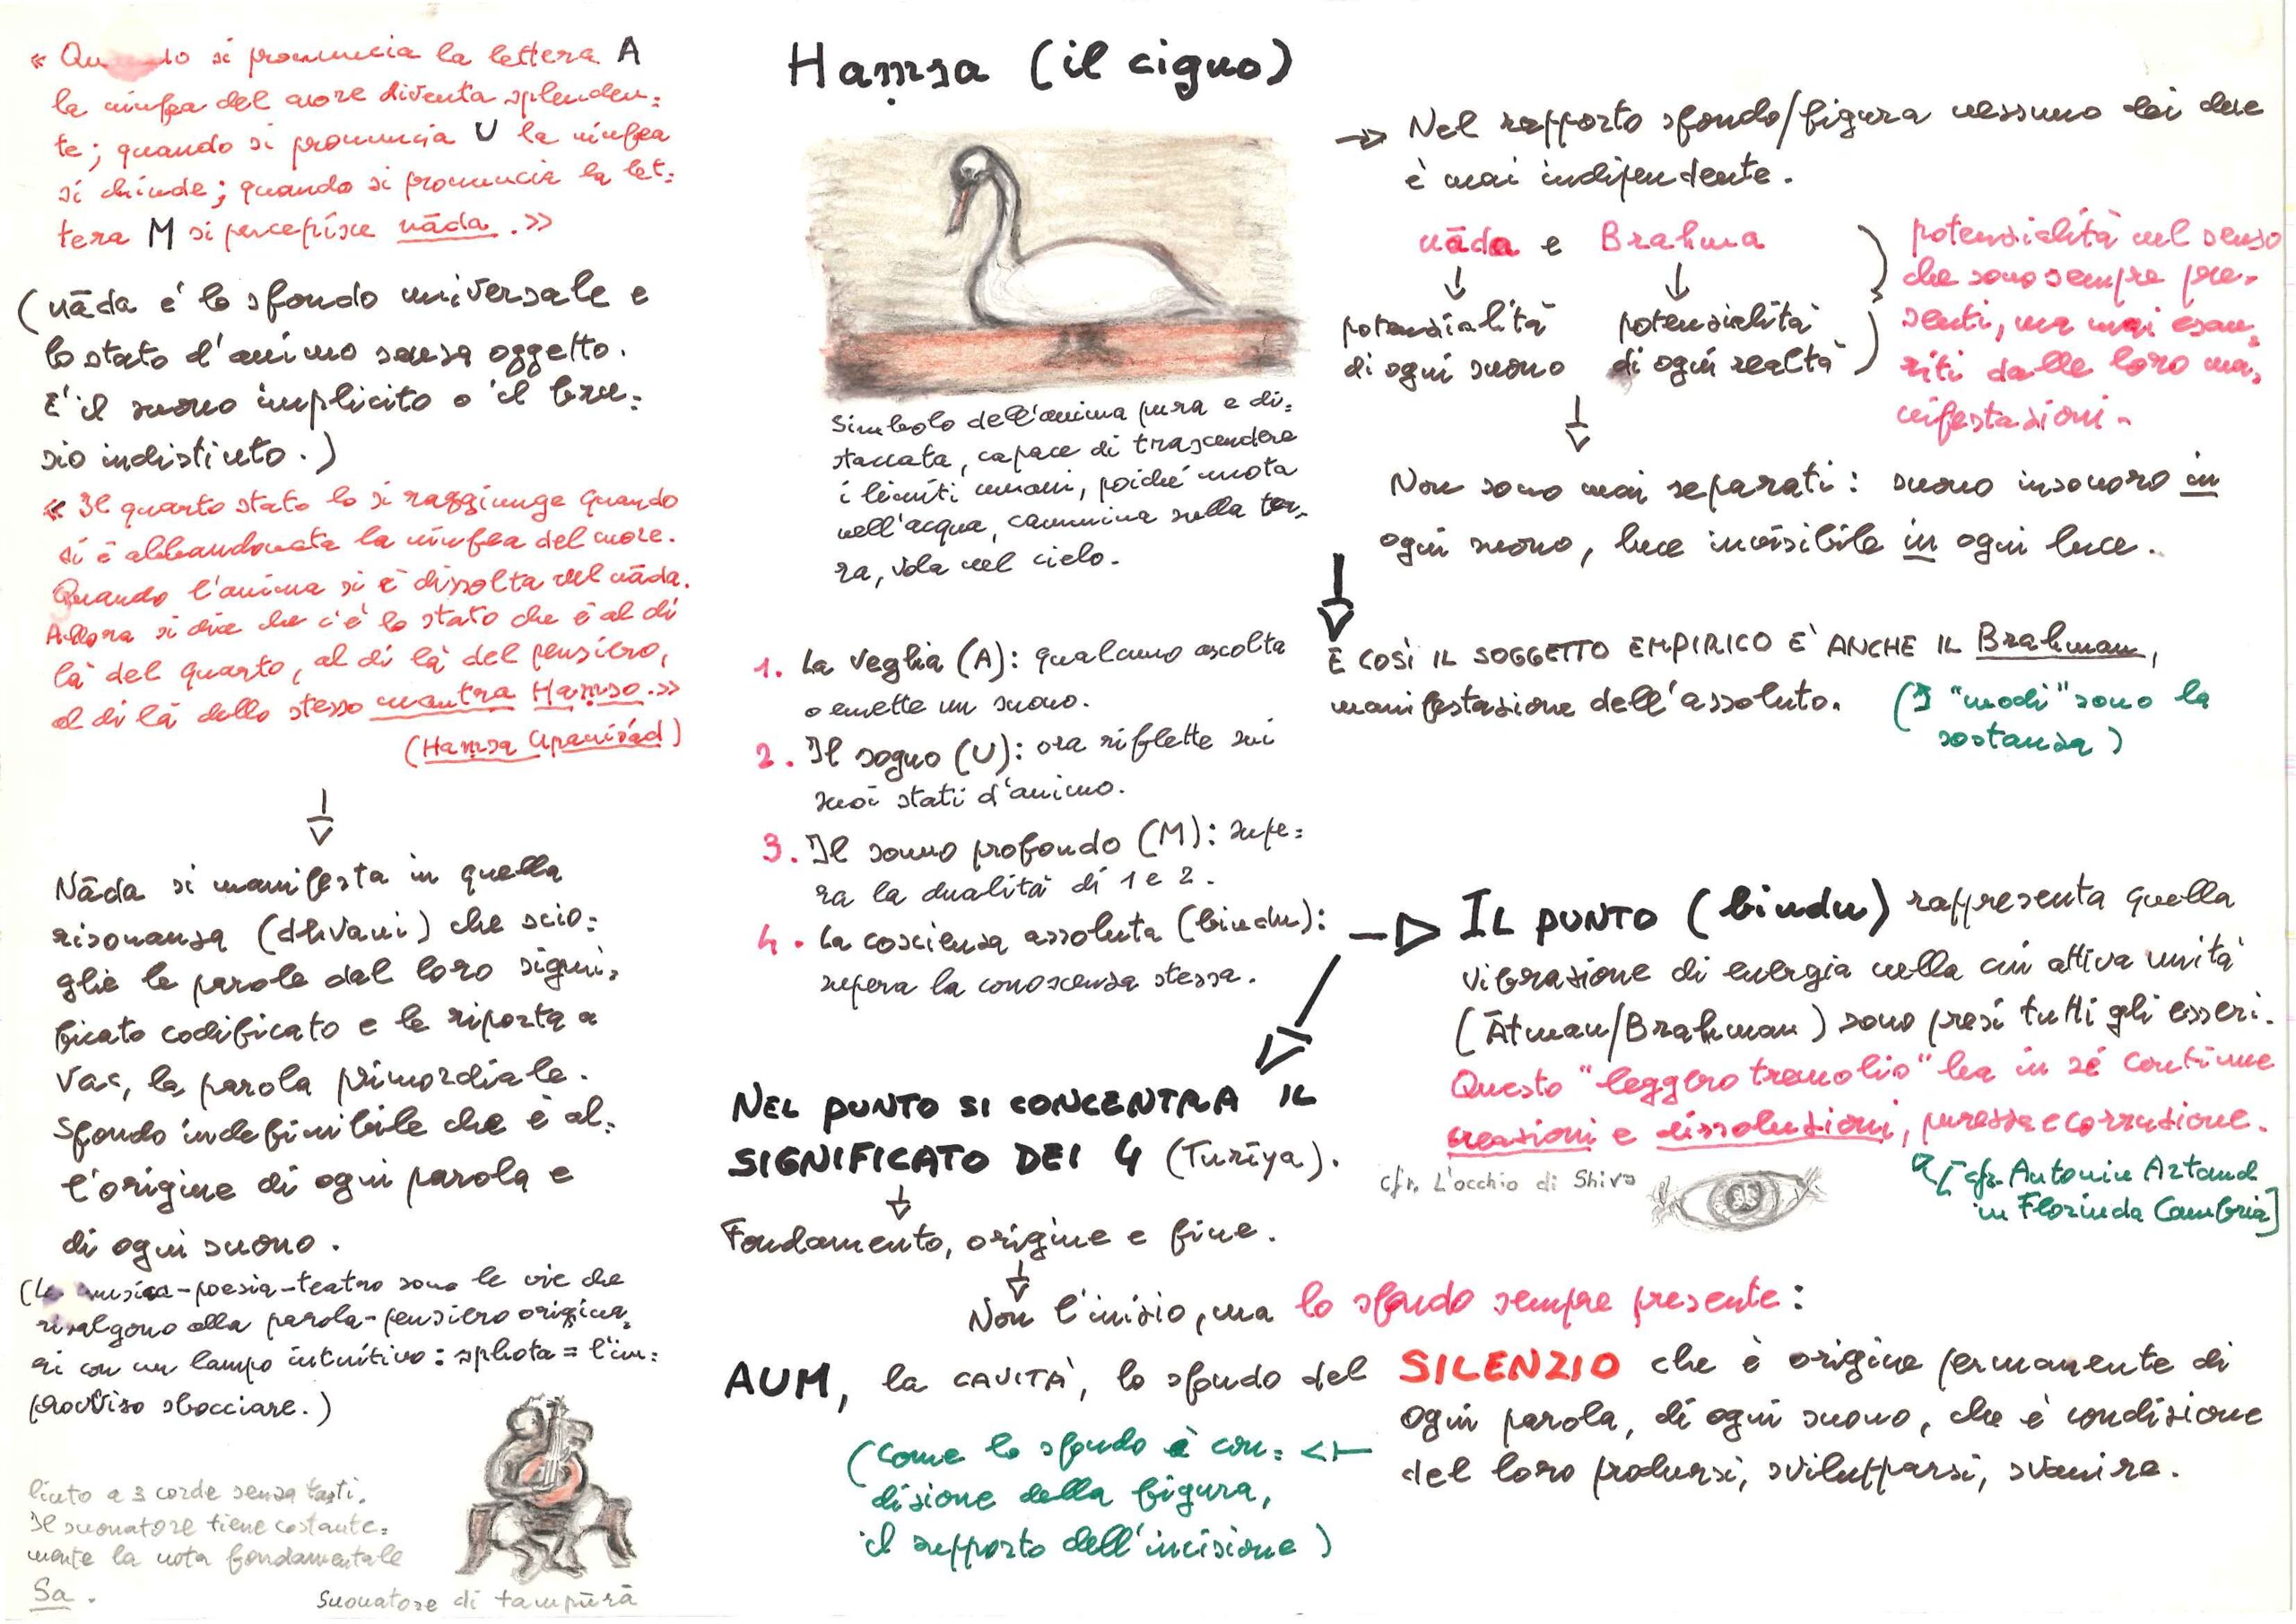 « Quando si pronuncia la lettera A
la ninfea del cuore diventa splenden=
te; quando si pronuncia U la ninfea
si chiude; quando si pronuncia la let=
tera M si percepisce nāda.»
(nāda è lo sfondo universale e
lo stato d'animo senza oggetto.
E' il suono implicito o il bru=
sio indistinto.)
« Il quarto stato lo si raggiunge quando
si è abbandonata la ninfea del cuore.
Quando l'anima si è dissolta nel nāda.
Allora si dice che c'è lo stato che è al di
là del quarto, al di là del pensiero,
al di là dello stesso mantra Haṃso.»
(Haṃsa Upaniṣad)
Nāda si manifesta in quella
risonanza (dhvani) che scio=
glie le parole dal loro signi=
ficato codificato e le riporta a
Vac, la parola primordiale.
Sfondo indefinibile che è al=
l'origine di ogni parola e
di ogni suono.
(La musica-poesia-teatro sono le vie che
risalgono alla parola-pensiero origina=
ri con un lampo intuitivo: sphota = l'im=
provviso sbocciare.)
liuto a 3 corde senza tasti.
Il suonatore tiene costante=
mente la nota fondamentale
Sa.
Suonatore di tampūrā
Haṃsa (il cigno)
Simbolo dell'anima pura e di=
staccata, capace di trascendere
i limiti umani, poiché nuota
nell'acqua, cammina sulla ter=
ra, vola nel cielo.
1. La veglia (A): qualcuno ascolta
o emette un suono.
2. Il sogno (U): ora riflette sui
suoi stati d'animo.
3. Il sonno profondo (M): supe=
ra la dualità di 1 e 2.
4. La coscienza assoluta (bindu):
supera la conoscenza stessa.
NEL PUNTO SI CONCENTRA IL
SIGNIFICATO DEI 4 (Turīya).
Fondamento, origine e fine.
Non l'inizio, ma lo sfondo sempre presente:
AUM, la CAVITÀ, lo sfondo del SILENZIO che è origine permanente di
ogni parola, di ogni suono, che è condizione
del loro prodursi, svilupparsi, svanire.
(Come lo sfondo è con=
dizione della figura,
il supporto dell'incisione)
Nel rapporto sfondo/figura nessuno dei due
è mai indipendente.
nāda e Brahma
potenzialità di ogni suono
potenzialità di ogni realtà
potenzialità nel senso
che sono sempre pre=
senti, ma mai esau=
riti dalle loro ma=
nifestazioni.
Non sono mai separati: suono insonoro in
ogni suono, luce invisibile in ogni luce.
E COSÌ IL SOGGETTO EMPIRICO E' ANCHE IL Brahman,
manifestazione dell'assoluto. (I "modi" sono la
sostanza)
IL PUNTO (bindu) rappresenta quella
vibrazione di energia nella cui attiva unità
(Ātman/Brahman) sono presi tutti gli esseri.
Questo "leggero tremolio" ha in sé continue
creazioni e dissoluzioni, purezza e corruzione.
cfr. L'occhio di Shiva
[cfr. Antonin Artaud
in Florinda Cambria]